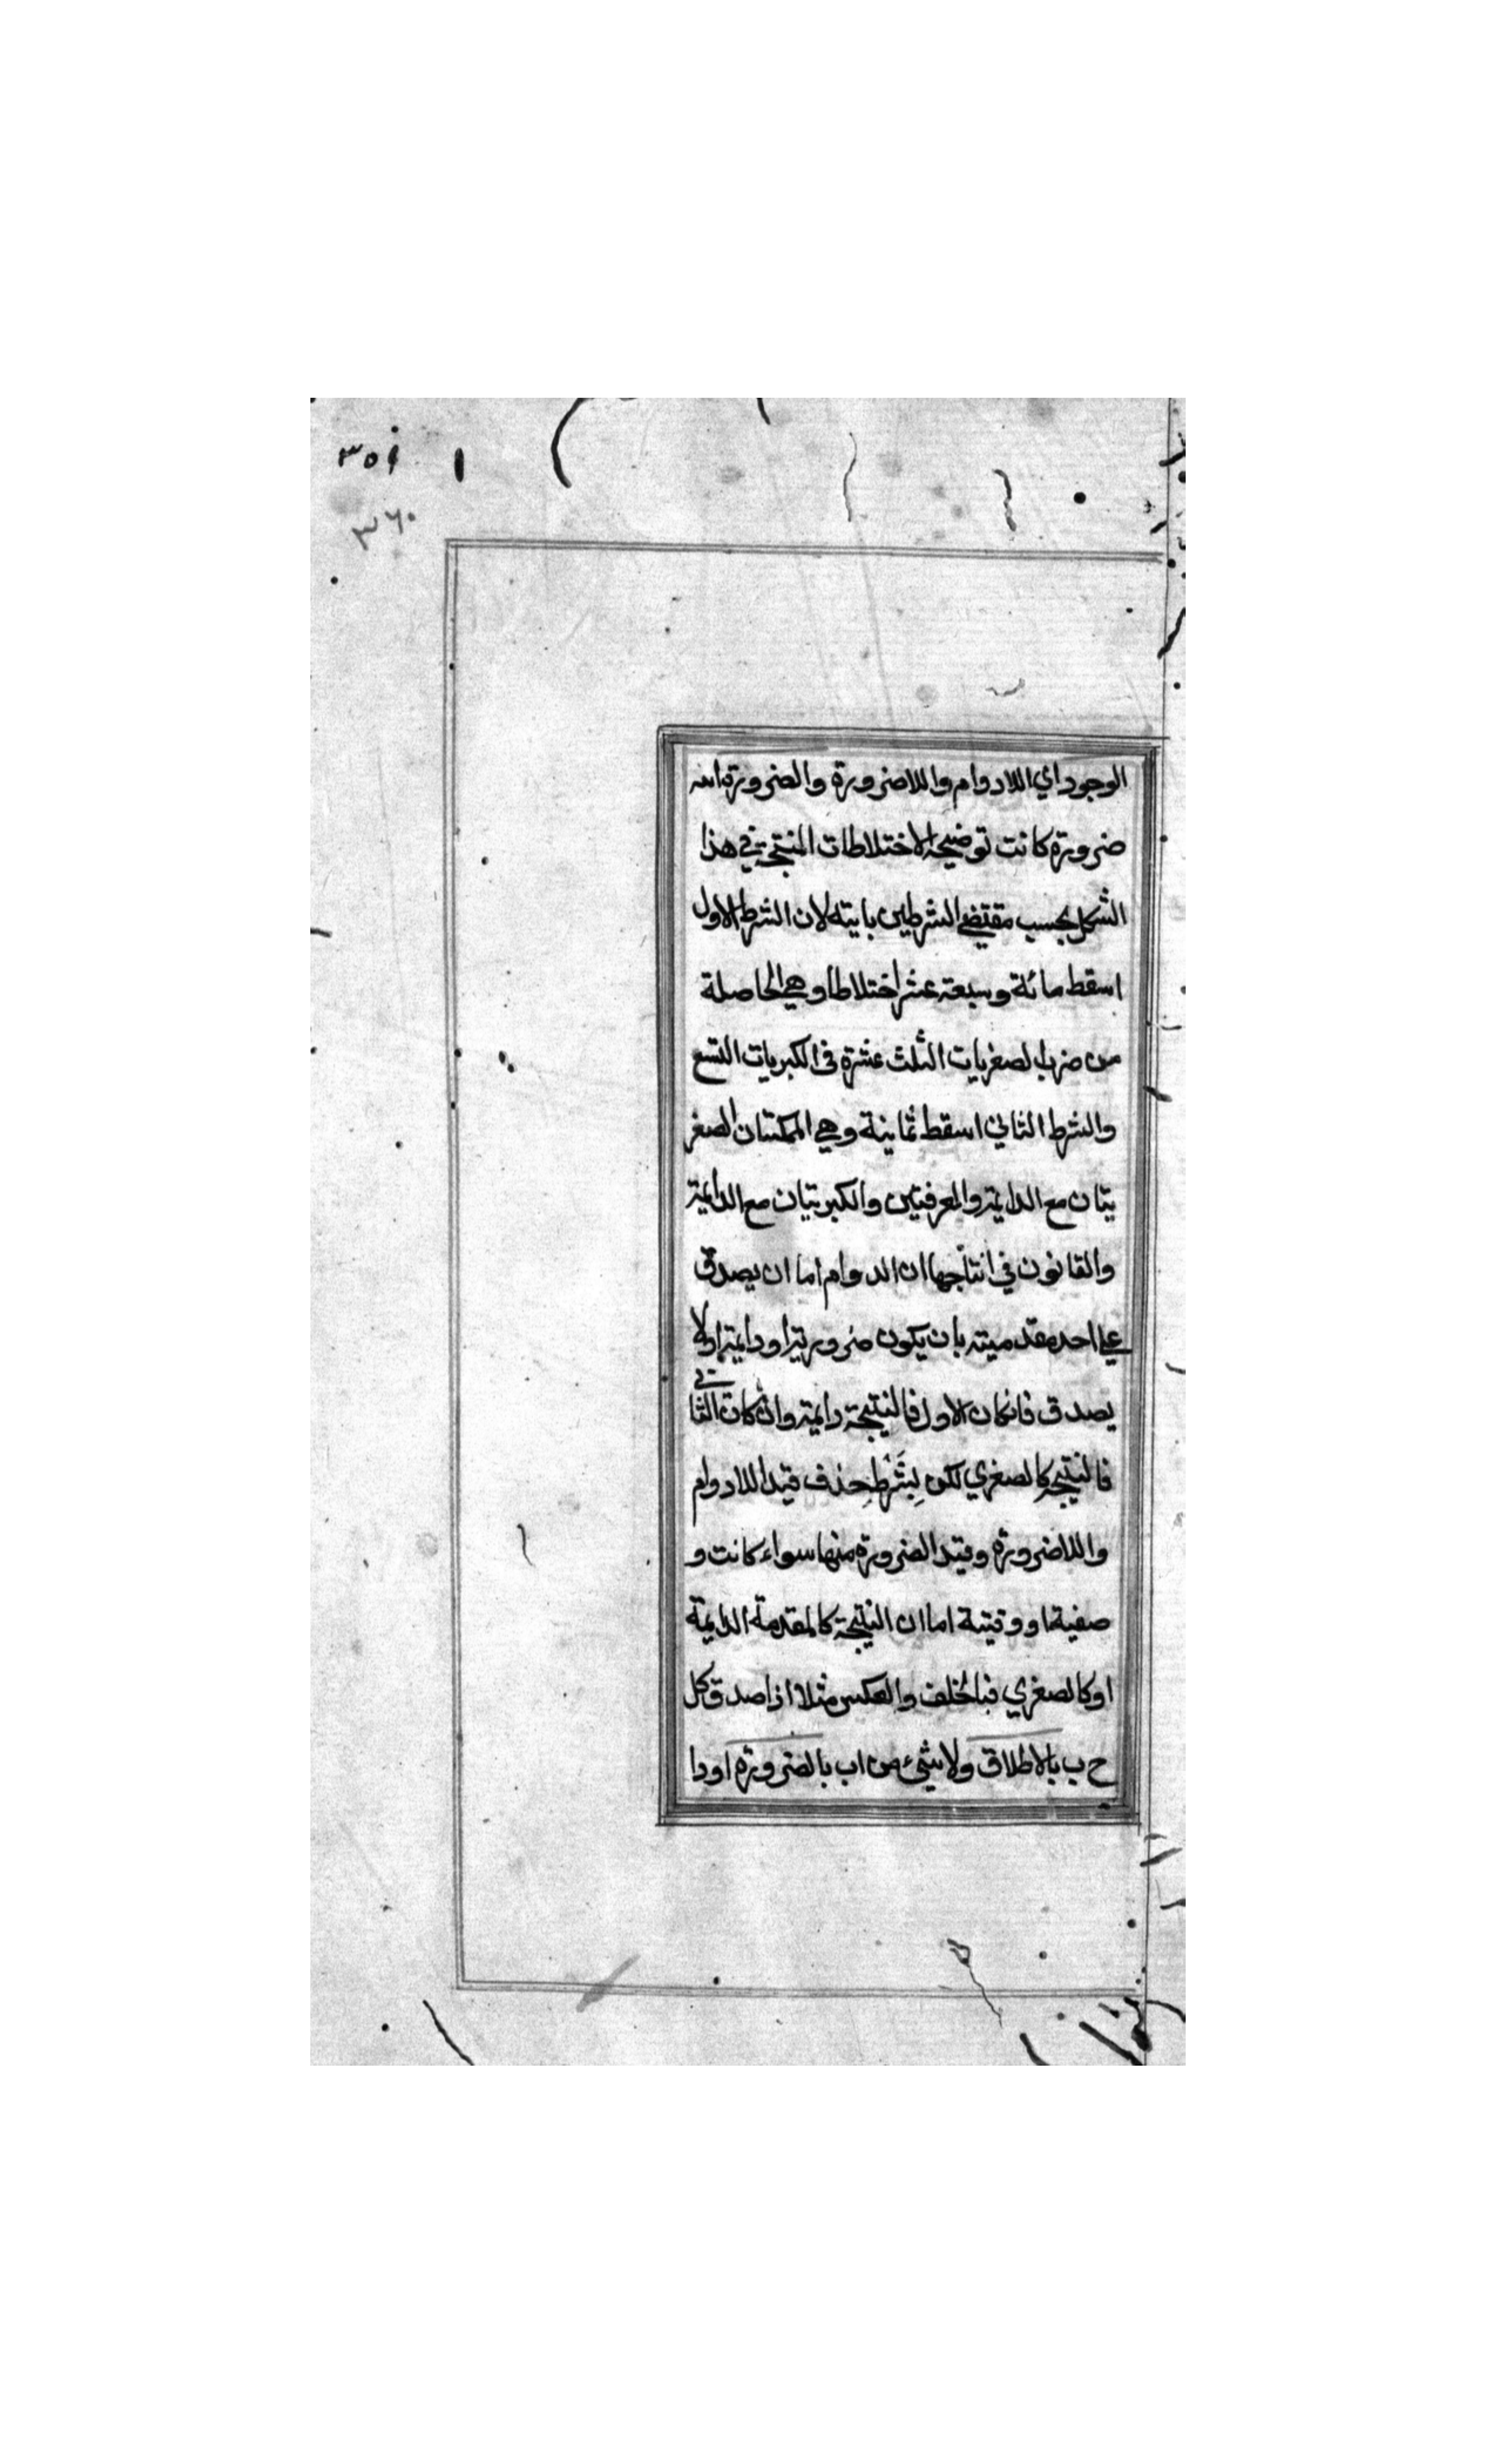 ٣٥٩
٣٦٠
الوجود اي اللادوام واللاضرورة والضرورة اية
ضرورة كانت توضيحه الاختلاطات المنتجة في هذا
الشكل بحسب مقتضي الشرطين باينه لان الشرط الاول
اسقط مائة وسبعة عشر اختلاطا وهي الحاصلة
من ضرب الصغريات الثلث عشرة في الكبريات التسع
والشرط الثاني اسقط ثمانية وهي الممكنتان الصغر
يتان مع الدايمة والعرفيتين والكبريتيان مع الدايمة
والقانون في انتاجها ان الدوام اما ان يصدق
علي احد مقدميته بان يكون ضرورية او دايمة او لا
يصدق فان كان الاول فالنتيجة دايمة وان كان الثاني
فالنتيجة كالصغري لكن بِشَرْطِ حذف قيد اللادوام
واللاضرورة وقيد الضرورة منها سواء كانت و
صفية او وقتية اما ان النتيجة كالمقدمة الدايمة
او كالصغري فبالخلف والعكس مثلا اذا صدق كل
ح ب بالاطلاق ولا شئ من اب بالضرورة او دا